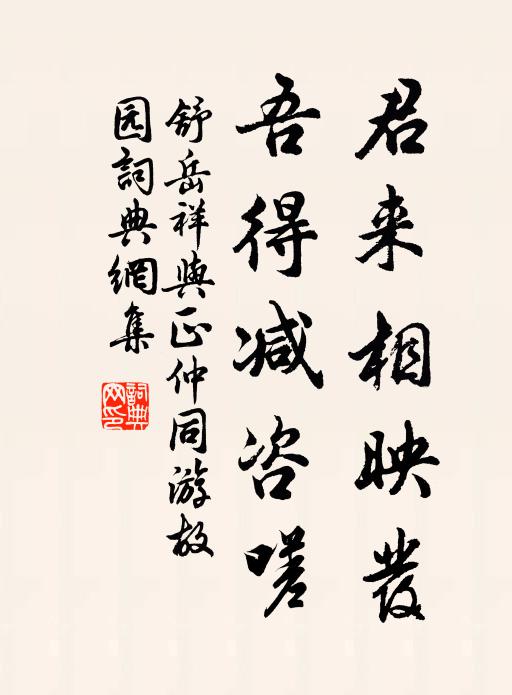 君来相映發
吾得减咨嗟
舒岳祥與正仲同游故
园詞典網集
詞典网印